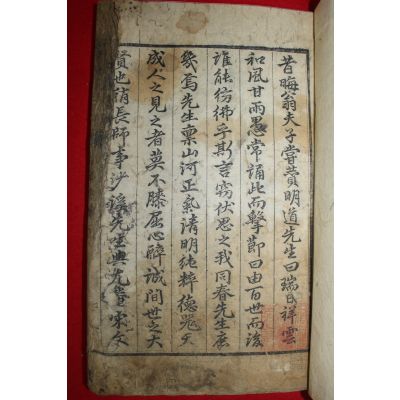 昔晦翁夫子嘗贊明道先生曰瑞日祥雲
和風甘雨愚常誦此而擊節曰由百世而後
誰能彷彿乎斯言竊伏思之我同春先生庶
幾焉先生稟山河正氣清明純粹德器
成人之見之者莫不膝屈心醉誠間世之大
賢也稍長師事沙溪先生與尤